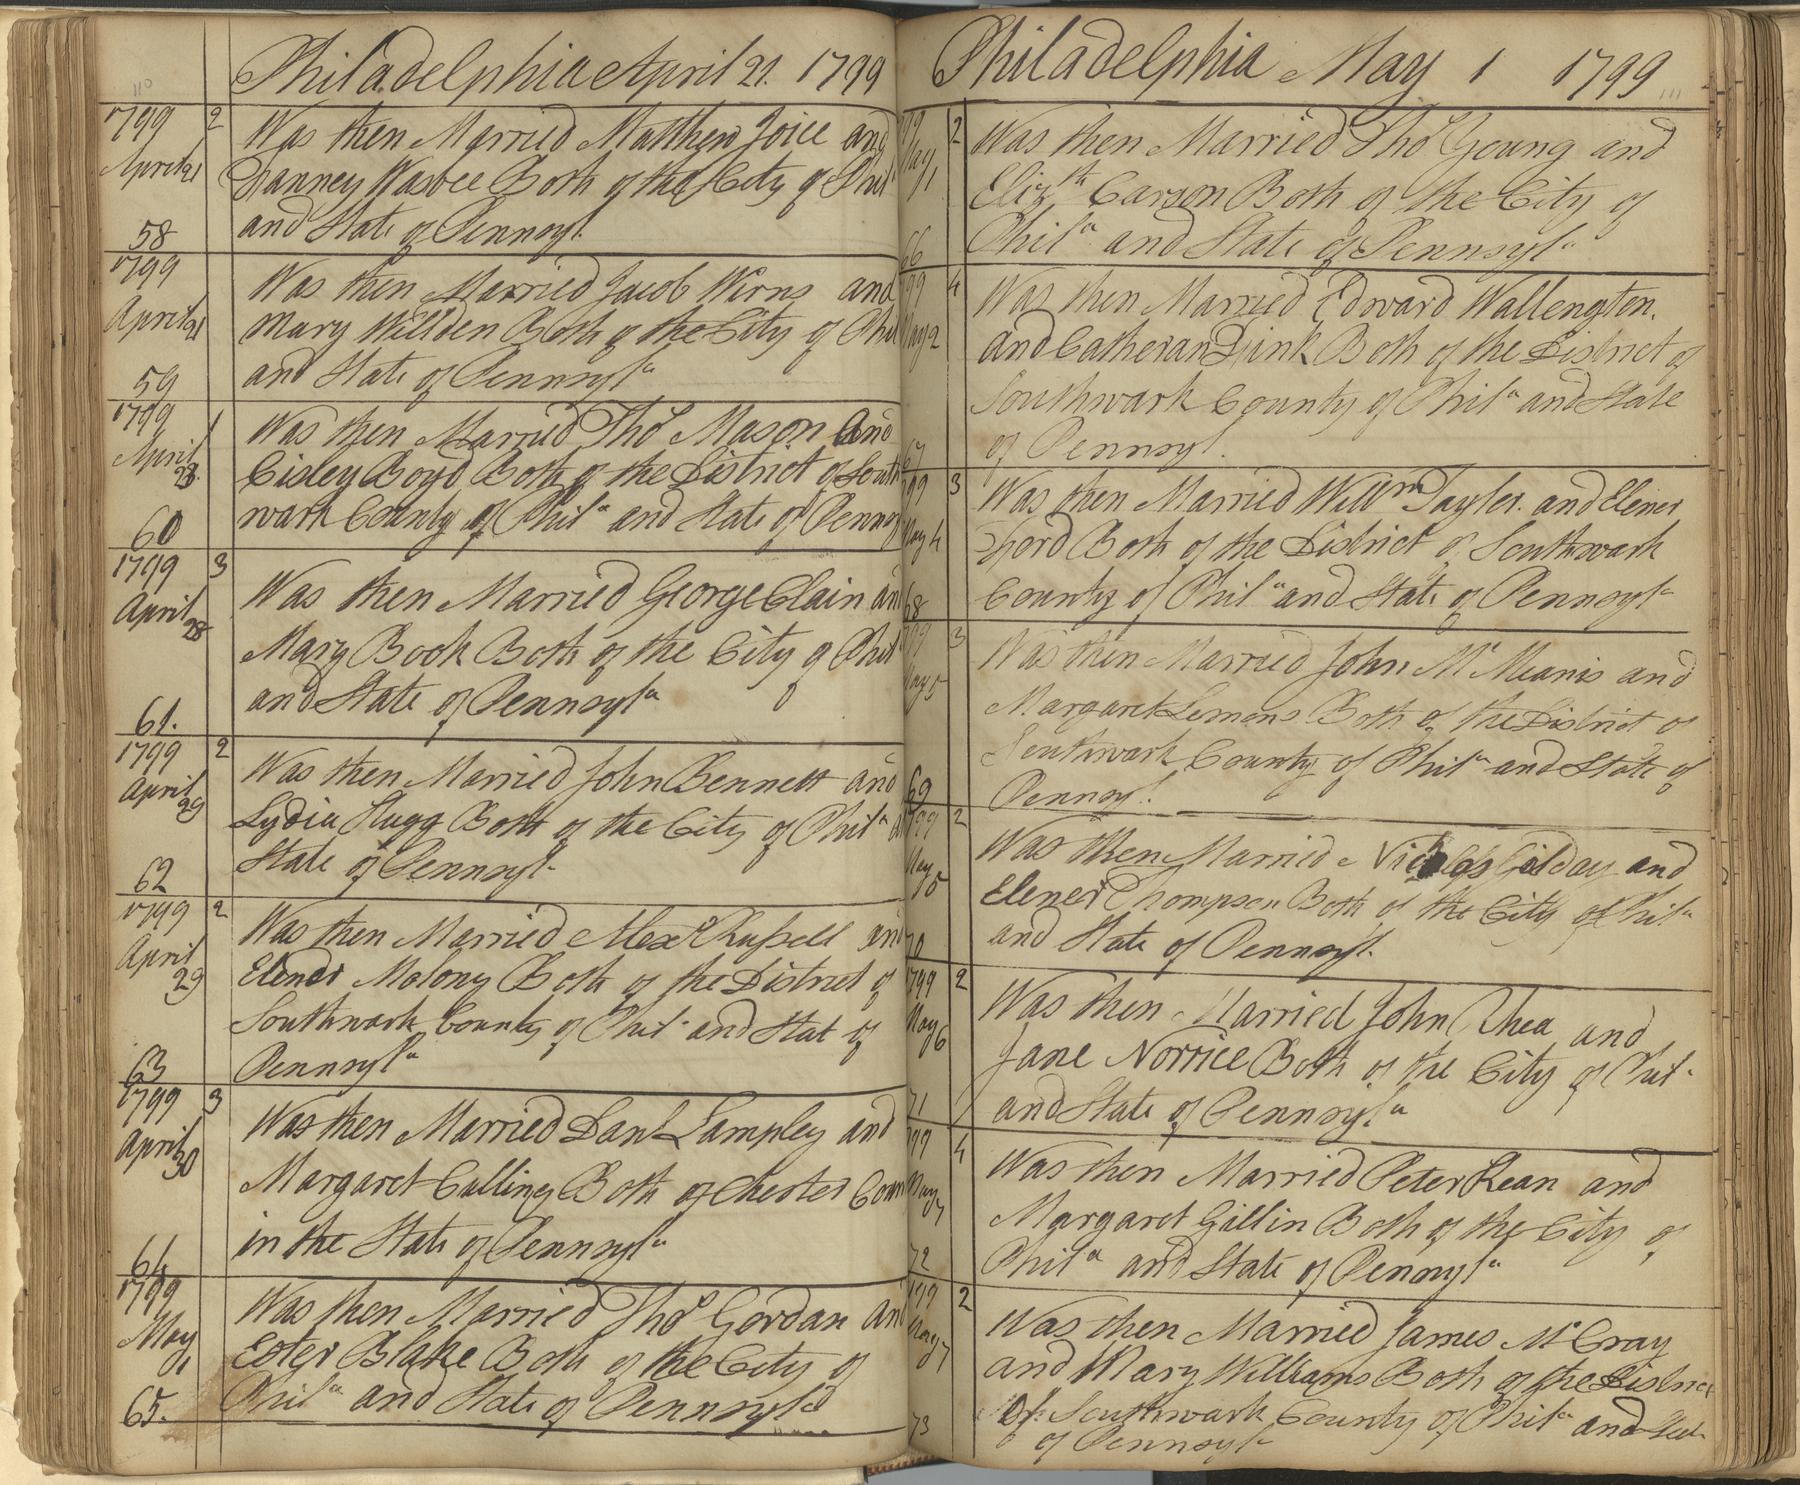 110
Philadelphia April 21. 1799
1799 2
April 21
Was then Married Matthew Joice and
Fanney Wasbee Both of the City of Phila
and State of Pennsyl.
58
1799
April 21
Was then Married Jacob Wirns and
Mary Willden Both of the City of Phil
and State of Pennsyla
59
1799 1
April 28.
Was then Married Tho Mason And
Cisley Boyd Both of the District of South
wark County of Phila and State of Pennsy
60
1799 3
April 28
Was then Married George Clain an
Mary Book Both of the City of Phil
and State of Pennsyla
61.
1799 2
April 29
Was then Married John Bennett and
Lydia Stugg Both of the City of Phila
State of Pennsyl.
62
1799 2
April 29
Was then Married Alexr Russell and
Elener Malony Both of the District of
Southwark County of Phil and Stat of
Pennsyla
63
1799 3
April 30
Was then Married Danl Lampley and
Margaret Culling Both of Chester Coun
in the State of Pennsyla
64
1799
May 1
Was then Married Tho Gordan an
Ester Blake Both of the City of
Phila and State of Pennsyla
65.
Philadelphia May 1 1799
111
99 2
May 1
Was then Married Tho Young and
Elizth Carson Both of the City of
Phila and State of Pennsyla
66
99 4
May 2
Was then Married Edward Wallengton.
and Catheran Dink Both of the District of
Southwark County of Phila and State
of Pennsyl.
67
99 3
May 4
Was then Married Willm Tayler. and Elener
Ford Both of the District of Southwark
County of Phila and State of Pennsyla
68
99 3
May 5
Was then Married John Mc Meanis and
Margaret Lemons Both of the District of
Southwark County of Phila and State of
Pennsyl.
69
1799 2
May 5
Was then Married Nicholas Gilday and
Elener Thompson Both of the City of Phila
and State of Pennsyl.
70
1799 2
May 6
Was then Married John Rhea and
Jane Norrice Both of the City of Phil
and State of Pennsyla
71
799 4
May 7
Was then Married Peter Kean and
Margaret Gillin Both of the City of
Phila and State of Pennsyla
72
1799 2
May 7
Was then Married James McCray
and Mary Williams Both of the District
Of Southwark County of Phila and Stat
of Pennsyla
73